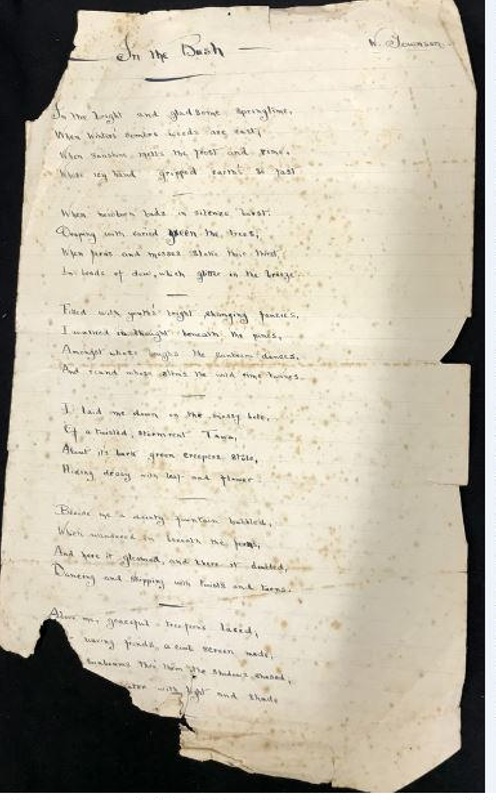 In the Bush
W.
In the bright and gladsome springtime,
When Winter's sombre weeds are cast,
When sunshine melts the frost and rime,
Whose icy hand gripped earth so fast
When newborn buds in silence burst
Draping with varied green the trees,
When ferns and mosses slake their thirst,
In beads of dew, which glitter in the breeze.
Filled with youth's bright changing fancies,
I walked in thought beneath the pines,
Amongst whose boughs the sunbeam dances,
And round whose stems the wild vine twines.
I laid me down on the mossy bole,
Of a twisted, stormrent Tawa,
About its bark green creepers stole,
Hiding decay with leaf and flower.
Beside me a dainty fountain bubbled,
Which wandered in beneath the ferns,
And here it gleamed, and there it doubled,
Dancing and skipping with twists and turns.
Above me, graceful treeferns laced,
waving fronds, a cool screen made,
sunbeams thro' them the shadows chased,
with light and shade